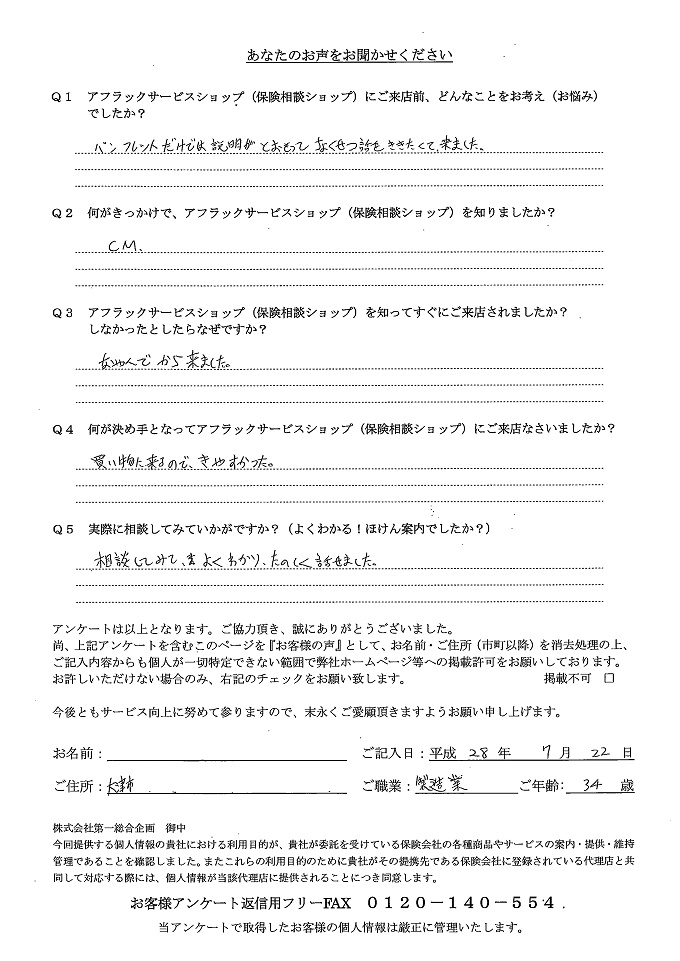 あなたのお声をお聞かせください
Q1 アフラックサービスショップ（保険相談ショップ）にご来店前、どんなことをお考え（お悩み）
でしたか？
パンフレットだけでは説明が
話をききたくて、来ました。
Q2 何がきっかけで、アフラックサービスショップ（保険相談ショップ）を知りましたか？
CM.
Q3 アフラックサービスショップ（保険相談ショップ）を知ってすぐにご来店されましたか？
しなかったとしたらなぜですか？
から来ました。
Q4 何が決め手となってアフラックサービスショップ（保険相談ショップ）にご来店なさいましたか？
買い物に来るので、きやすかった。
Q5 実際に相談してみていかがですか？（よくわかる！ほけん案内でしたか？）
相談してみて、よくわかり、たのしく話せました。
アンケートは以上となります。ご協力頂き、誠にありがとうございました。
尚、上記アンケートを含むこのページを『お客様の声』として、お名前・ご住所（市町以降）を消去処理の上、
ご記入内容からも個人が一切特定できない範囲で弊社ホームページ等への掲載許可をお願いしております。
お許しいただけない場合のみ、右記のチェックをお願い致します。 掲載不可 □
今後ともサービス向上に努めて参りますので、末永くご愛顧頂きますようお願い申し上げます。
お名前： ご記入日：平成 28 年 7 月 22 日
ご住所： ご職業：製造業 ご年齢: 34 歳
株式会社第一総合企画 御中
今回提供する個人情報の貴社における利用目的が、貴社が委託を受けている保険会社の各種商品やサービスの案内・提供・維持
管理であることを確認しました。またこれらの利用目的のために貴社がその提携先である保険会社に登録されている代理店と共
同して対応する際には、個人情報が当該代理店に提供されることにつき同意します。
お客様アンケート返信用フリーFAX 0120－140－554
当アンケートで取得したお客様の個人情報は厳正に管理いたします。